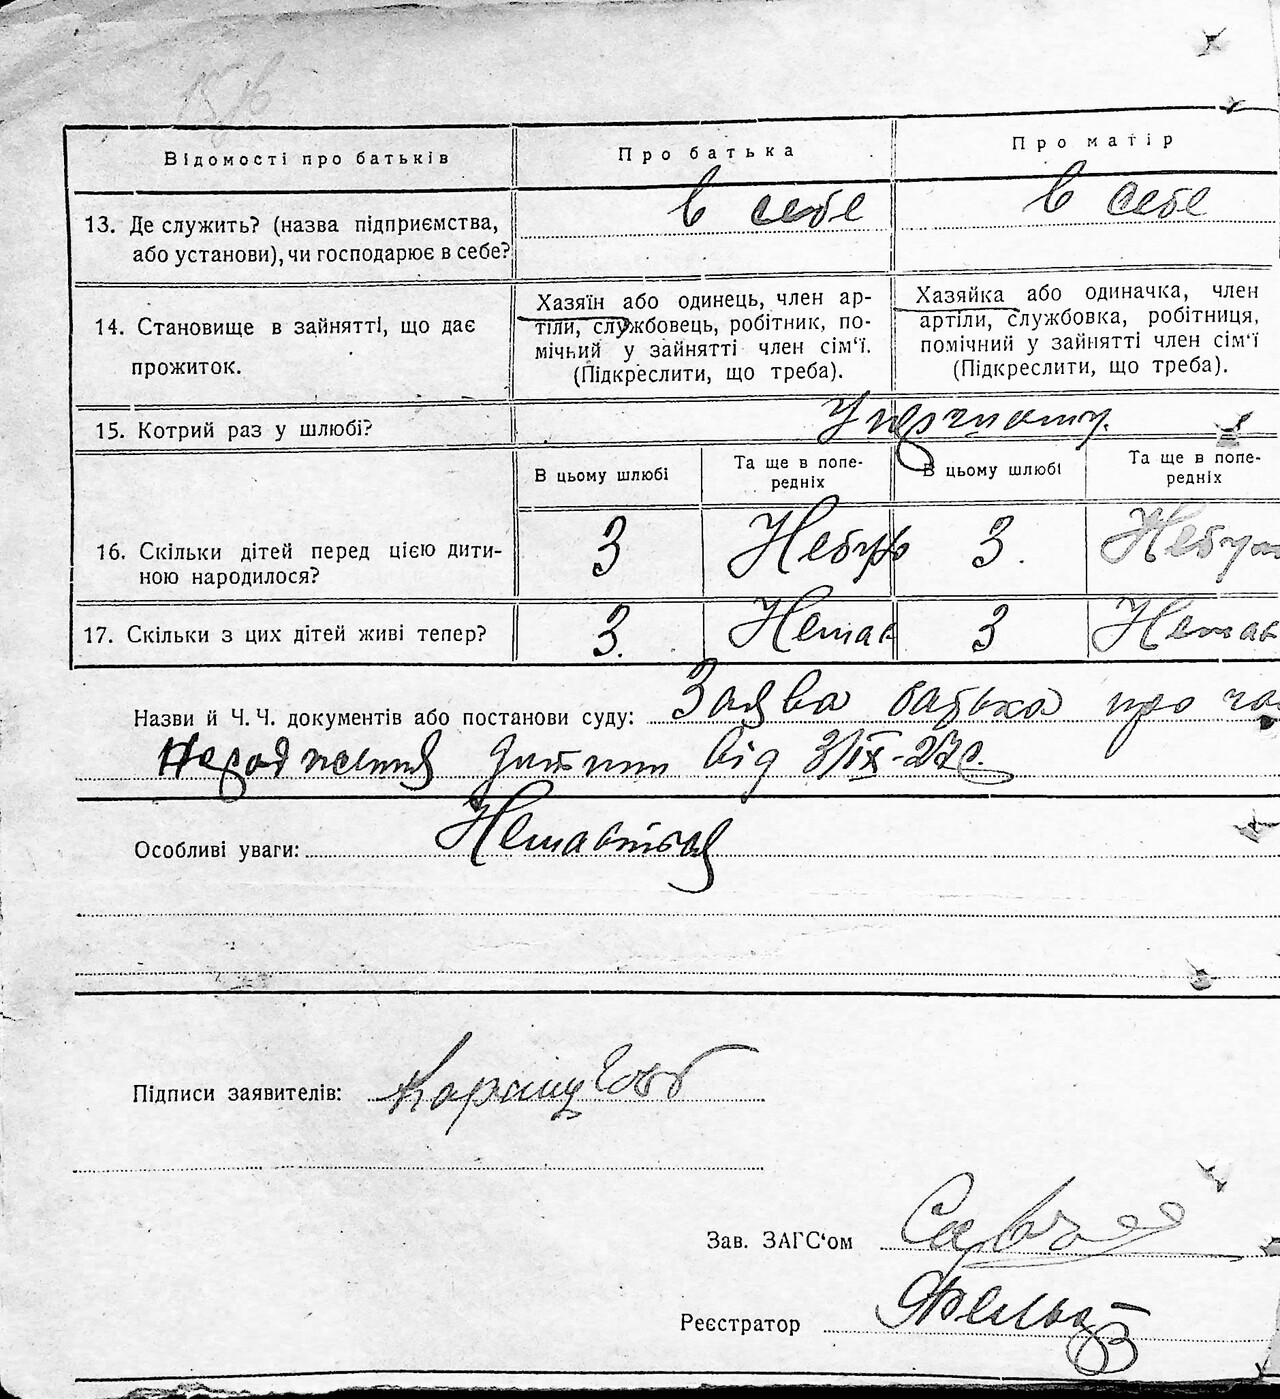 Відомості про батьків
Про батька
Про матір
13. Де служить? (назва підприємства, або установи), чи господарює в себе?
в себе
в себе
14. Становище в зайнятті, що дає прожиток.
Хазяїн або одинець, член ар-
тіли, службовець, робітник, по-
мічьий у зайнятті член сім'ї.
(Підкреслити, що треба).
Хазяйка або одиначка, член
артіли, службовка, робітниця,
помічний у зайнятті член сім'ї
(Підкреслити, що треба).
15. Котрий раз у шлюбі?
У первшому.
В цьому шлюбі
Та ще в попе-
редніх
В цьому шлюбі
Та ще в попе-
редніх
16. Скільки дітей перед цією дити-
ною народилося?
3
3.
17. Скільки з цих дітей живі тепер?
3.
Немає
3
Немає
Назви й Ч. Ч. документів або постанови суду: Заява батька про
народження дитини від 3/IX-27р.
Особливі уваги:
Підписи заявителів:
Зав. ЗАГС'ом
Реєстратор